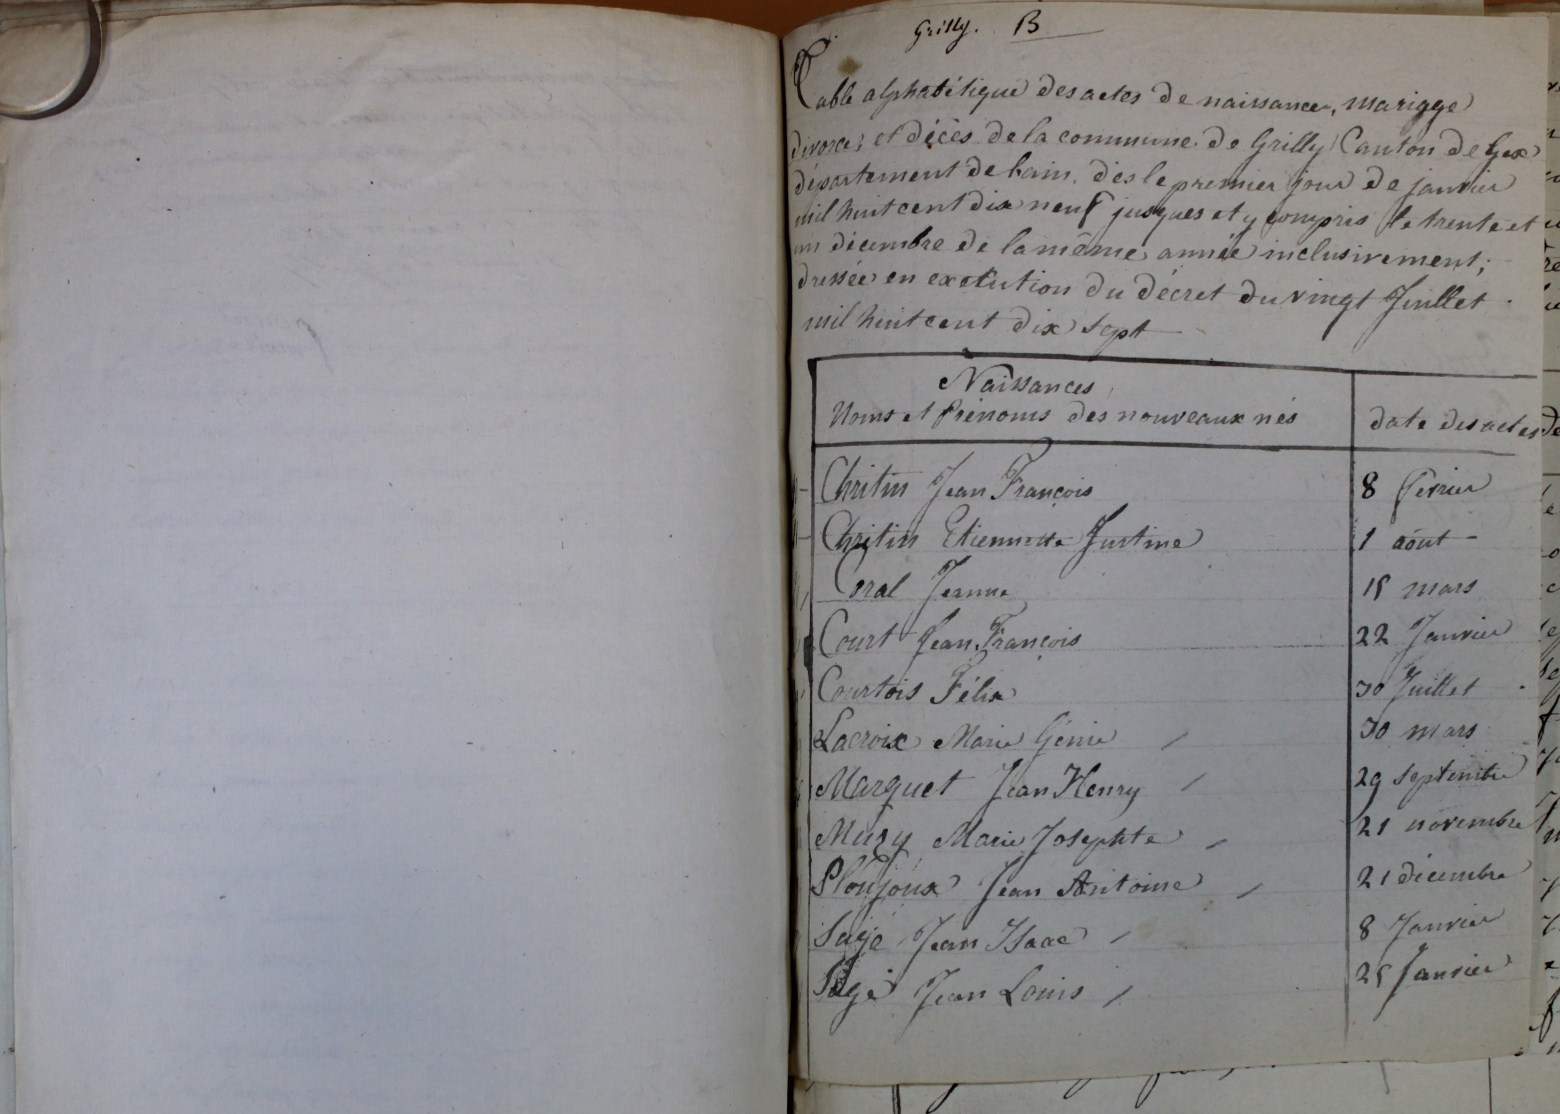 Grilly. B
Table alphabétique des actes de naissance, mariage
divorce, et décès de la commune de Grilly Canton de Gex
département de l'ain. dès le premier jour de janvier
mil huit cent dix neuf jusques et y compris le trente et
un décembre de la même année inclusivement;
dressée en exécution du décret du vingt Juillet
mil huit cent dix sept
Naissances
Noms et Prénoms des nouveaux nés
date des actes
Chritin Jean François 8 fevrier
Chritin Etiennette Justine 1 août
Coral Jeanne 15 mars
Court Jean François 22 Janvier
Courtois Félix 30 Juillet
Lacroix Marie Génie 30 mars
Marquet Jean Henry 29 septembre
Muzy Marie Josephte 21 novembre
Ploujoux Jean Antoine 21 décembre
Sagé Jean Isaac 8 Janvier
Jean Louis 25 Janvier